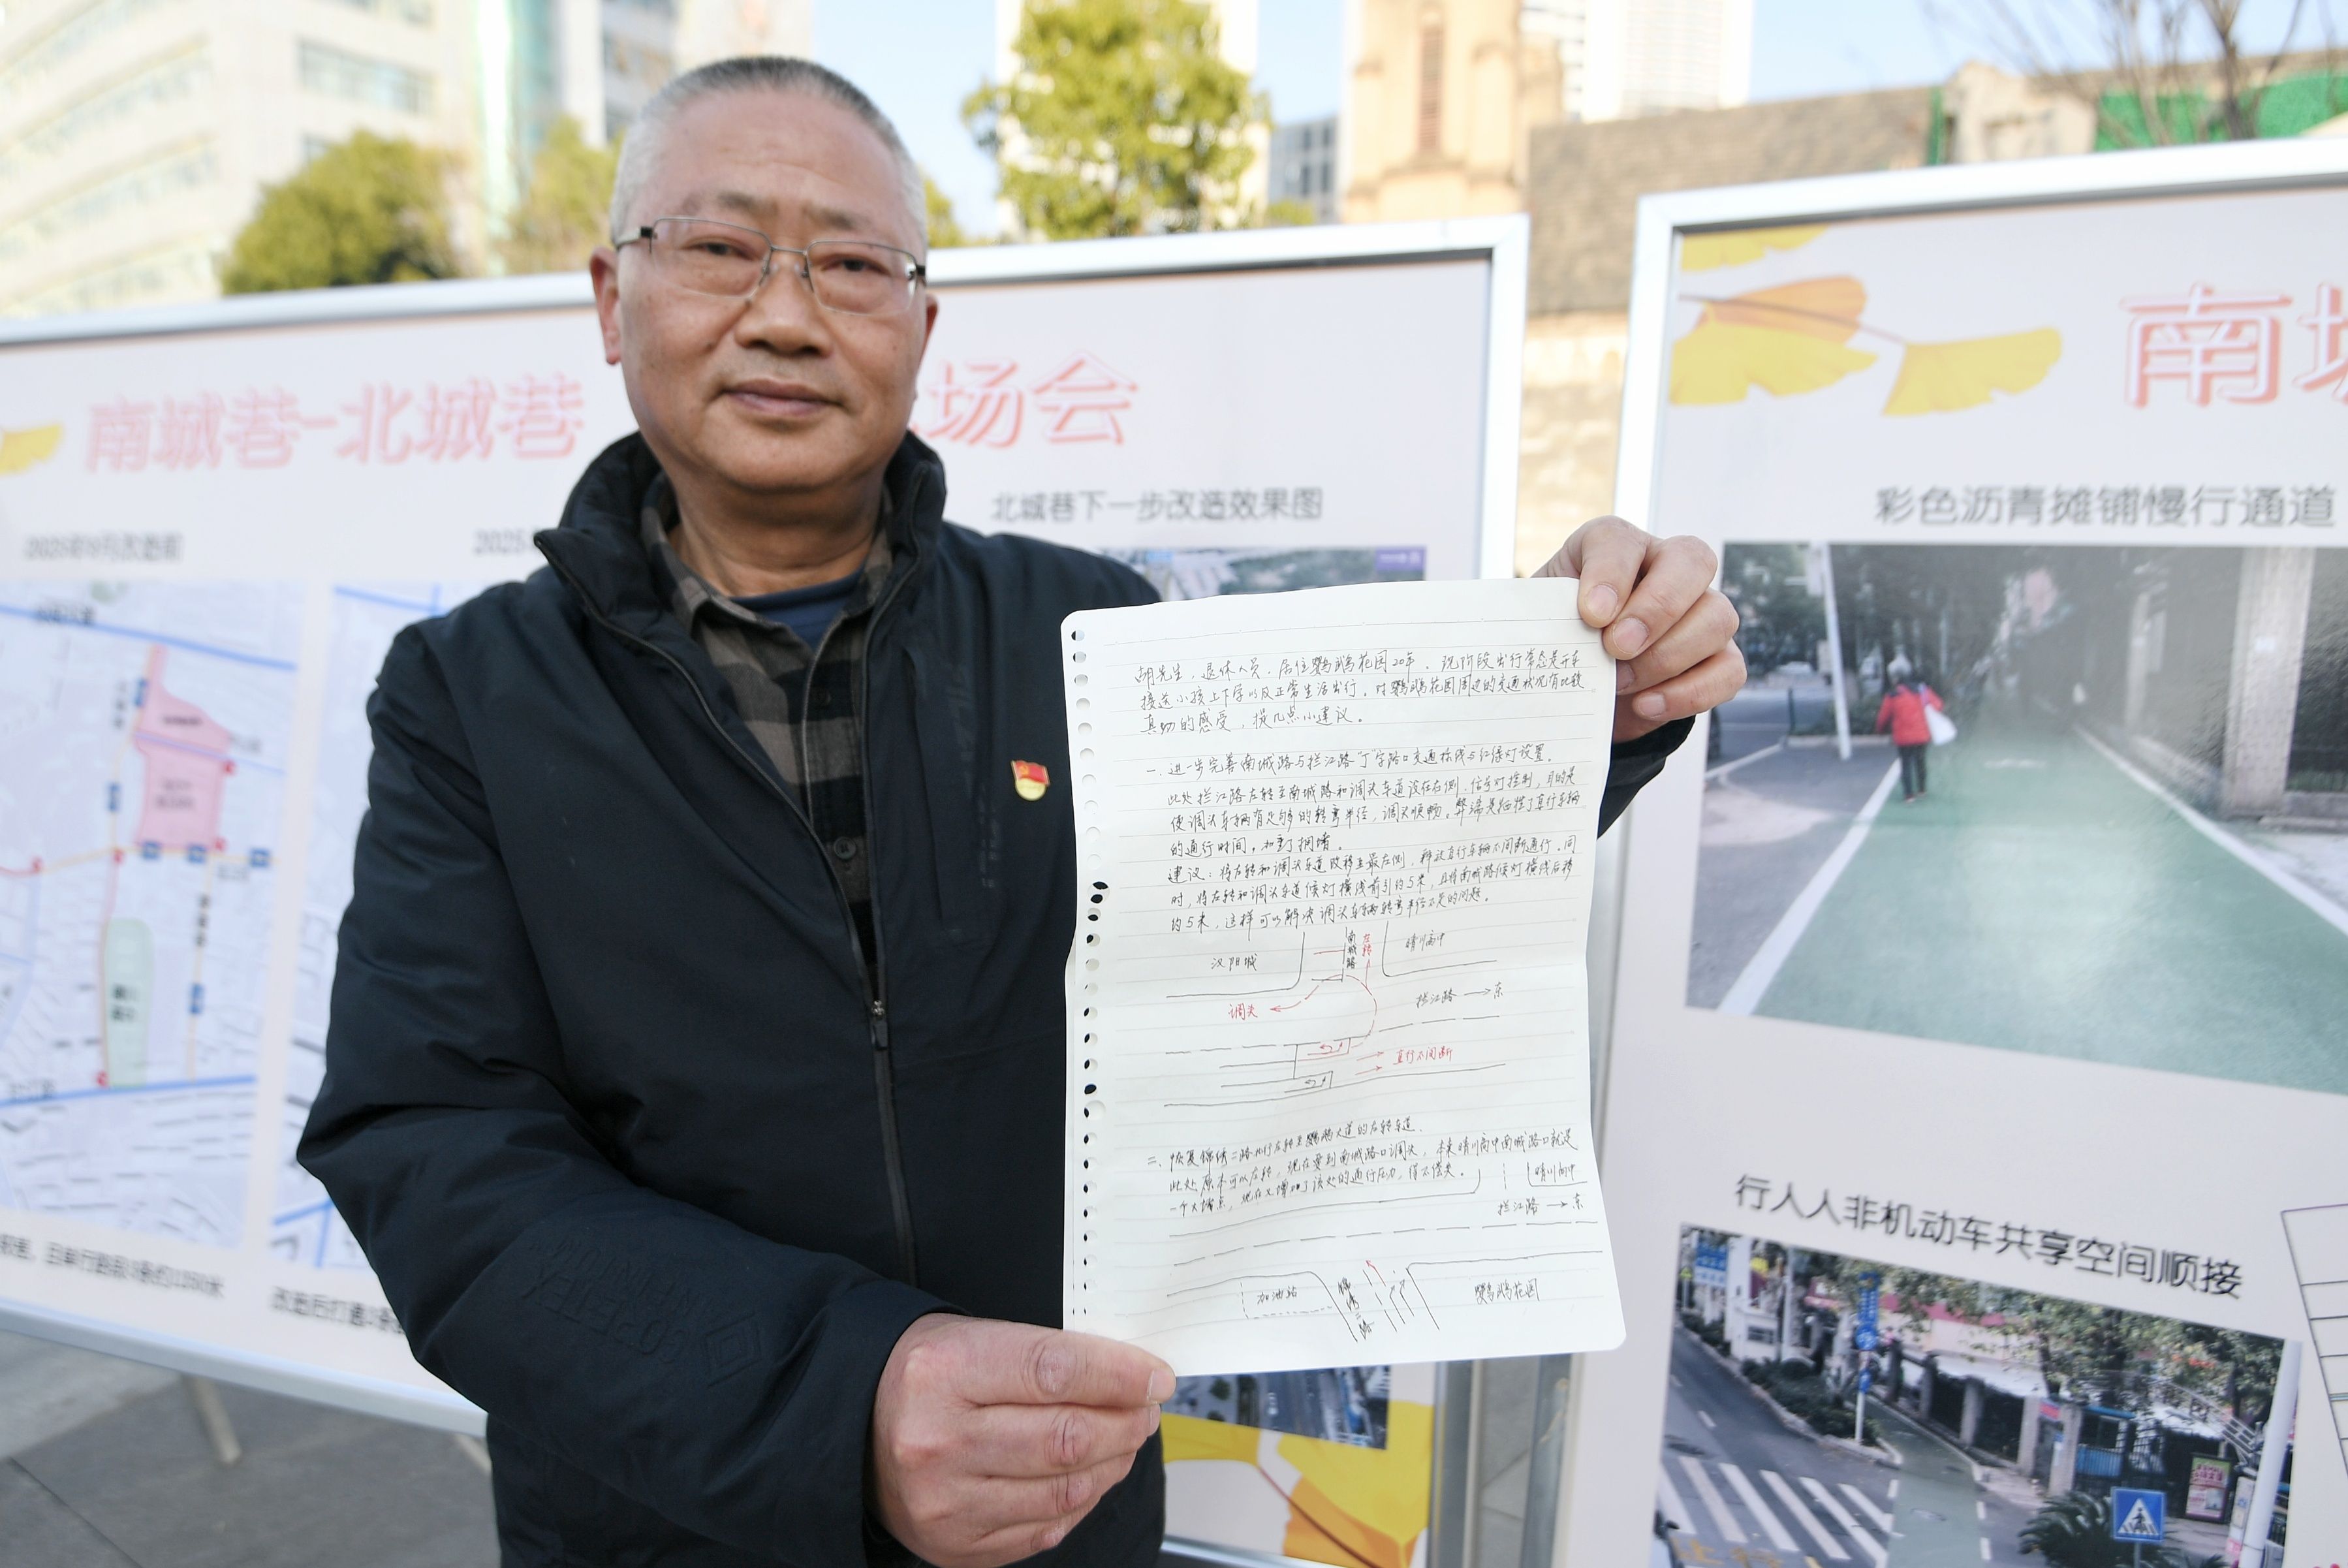 南城巷-北城巷
场会
北城巷下一步改造效果图
2025年9月改造前
2025
南城
彩色沥青摊铺慢行通道
行人人非机动车共享空间顺接
胡先生，退休人员，居住鹦鹉花园20年。现阶段出行常态是开车
接送小孩上下学以及正常生活出行。对鹦鹉花园周边的交通状况有比较
真切的感受，提几点小建议。
一、进一步完善南城路与拦江路“丁”字路口交通标线与红绿灯设置。
此处拦江路左转至南城路和调头车道设在右侧，信号灯控制，目的是
使调头车辆有足够的转弯半径，调头顺畅。弊端是牺牲了直行车辆
的通行时间，加剧拥堵。
建议：将左转和调头车道改移至最左侧，释放直行车辆不间断通行。同
时，将左转和调头车道候灯横线前引约5米，且将南城路候灯横线后移
约5米，这样可以解决调头车辆转弯半径不足的问题。
汉阳城
南城路
左转
晴川高中
调头
拦江路
东
直行不间断
二、恢复锦绣二路北行左转至鹦鹉大道的左转车道。
此处原本可以左转，现在要到南城路口调头，本来晴川高中南城路口就是
一个大堵点，现在又增加了该处的通行压力，得不偿失。
晴川高中
拦江路
东
加油站
锦绣二路
鹦鹉花园